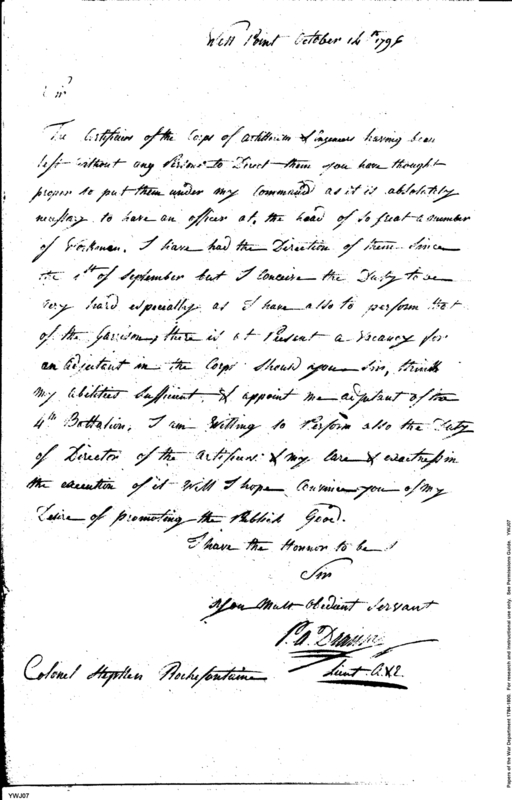 West Point October 14th 1796
Sir
The Artificers of the Corps of artillerists & Engineers having been
left without any Person to Direct them you have thought
proper to put them under my Command as it is absolutely
necessary to have an officer at the head of so great a number
of Workmen. I have had the Direction of them Since
the 1st of September but I Conceive the Duty to be
very hard especially as I have also to perform that
of the Garrison, there is at Present a Vacancy for
an adjutant in the Corps Should you Sir, think
my abilities Sufficient & appoint me adjutant of the
4th Battalion, I am Willing to Perform also the Duty
of Director of the artificers & my Care & exactness in
the execution of it Will I hope Convince you of my
Desire of promoting the Publick Good.
I have the Honnor to be
Sir
your Most obedient Servant
P. A. Dransy
Lieut. A & E.
Colonel Stephen Rochefontaine
YWJ07
Papers of the War Department 1784-1800. For research and instructional use only. See Permissions Guide. YWJ07